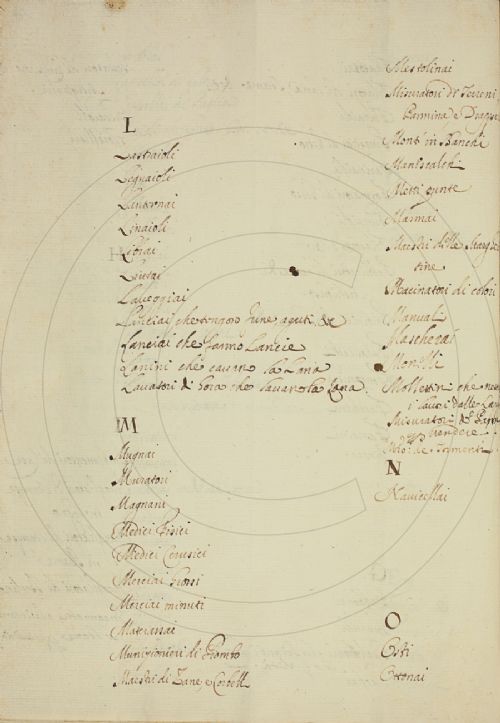 L
Lastraioli
Legnaioli
Lanternai
Linaioli
Librai
Liutai
Laveggiai
Lanciai che tengono fune, aguti &c
Lanciai che fanno Lancie
Lanini che cavano la Lana
Lavatori di che lavano la Lana
M
Mugnai
Muratori
Magnani
Medici Fisici
Medici Cerusici
Merciai Grossi
Merciai minuti
Materassai
Munizionieri di Piombo
Maestri di Zane, e Corbelli
Mestolinai
Misuratori di Terreni
Panmina e
Monti in Banchi
Maniscalchi
Metti punte
Marmai
Maestri delle
tine
Macinatori di colori
Manuali
Mascherai
Morelli
che
i lavori dalle
Misuratori di
vendere
N
Navicellai
O
Osti
Ottonai